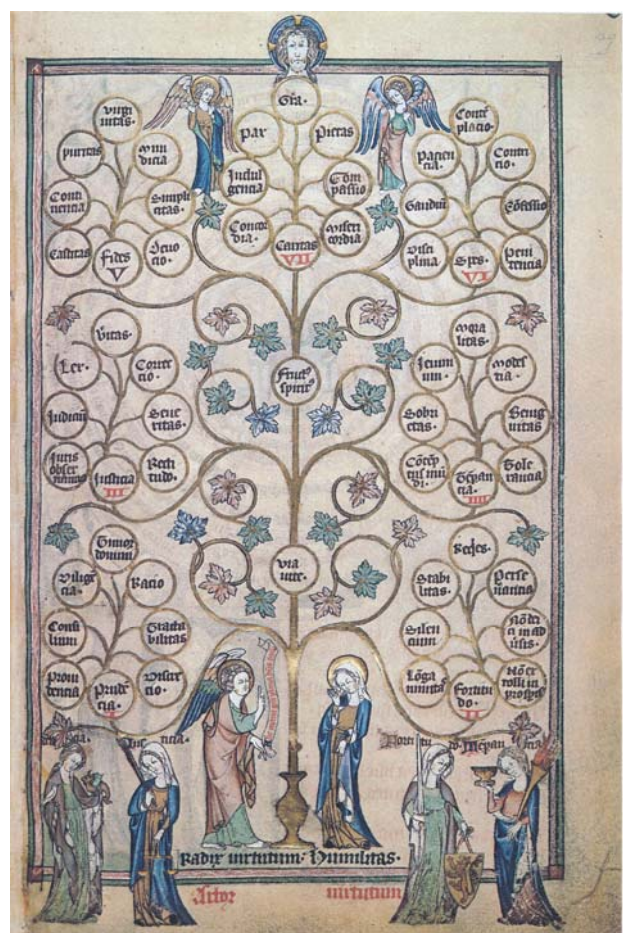 Gr̃a.
Pax
Pietas
Indul
gencia
Com
passio
Concor
dia.
Miseri
cordia
Caritas
VII
Virgi
nitas.
Puritas
Mun
dicia
Conti
nencia
Simpli
citas
Castitas
Deuo
cio.
Fides
V
Conte
placio.
Pacien
cia.
Contri
cio.
Gaudiu
Cõfessio
Disci
plina
Peni
tencia
Spes.
VI
Veritas.
Lex.
Correc
cio.
Judiciũ
Seue
ritas.
Juris
obser
Recti
tudo.
Justicia
III
Fruct9
spirit9
Mora
litas.
Jeiuni
um.
Modes
tia.
Sobri
etas.
Benig
nitas
Cõtẽp
tus mũ
di.
Tole
rancia
Tẽpan
cia.
IIII
Timor
domini
Dilige
cia.
Racio
Consi
lium
Tracta
bilitas
Proui
dencia
Discre
cio.
Prudẽ
cia.
I
Via
uite.
Reqes.
Stabi
litas.
Perse
uerancia
Silen
cium
Lõga
nimitas
Fortitu
do.
II
Radix uirtutum: Humilitas.
Arbor uirtutum